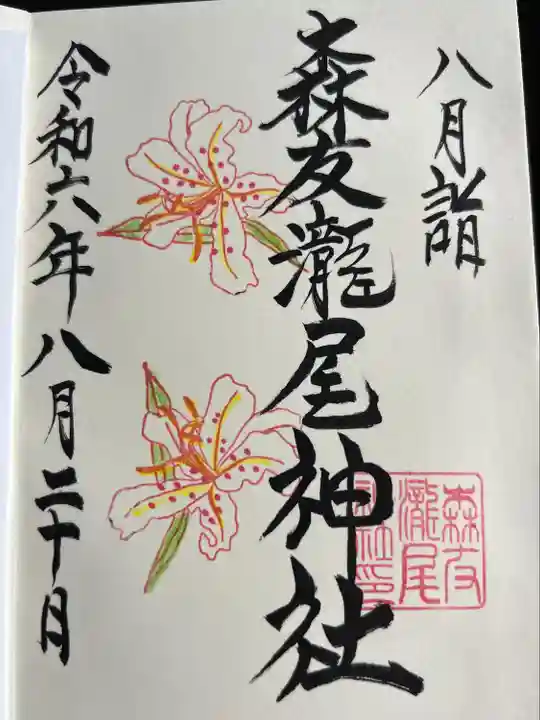 八月詣
森友瀧尾神社
令和六年八月二十日
森友
瀧尾
神社印